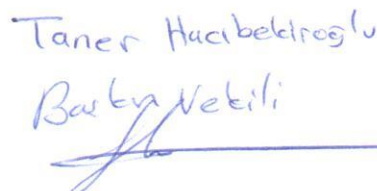 Taner Hacıbekiroğlu
Başkan Vekili